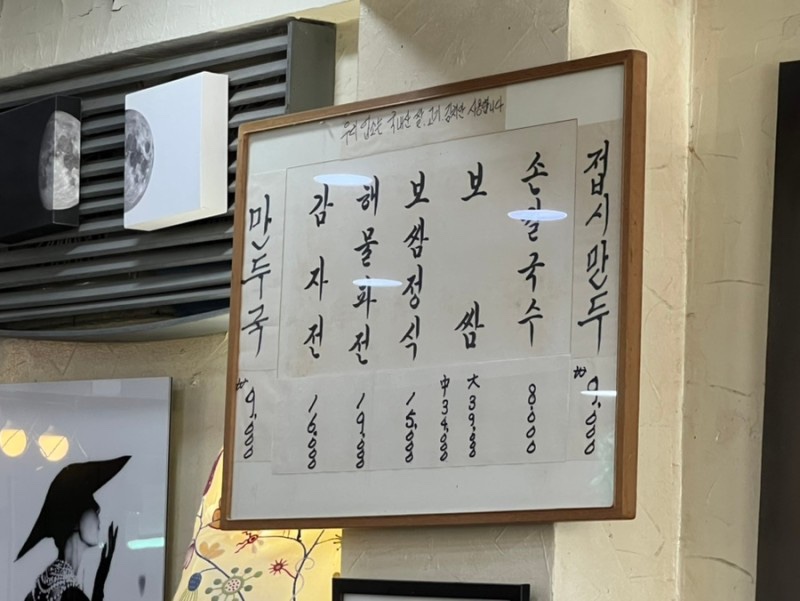 우리 업소는 국내산 쌀, 고기 김치만 사용합니다
접시만두 9,000
손칼국수 8000
보쌈 大39,000
中34,000
보쌈정식 15,000
해물파전 19,000
감자전 16,000
만두국 9,000